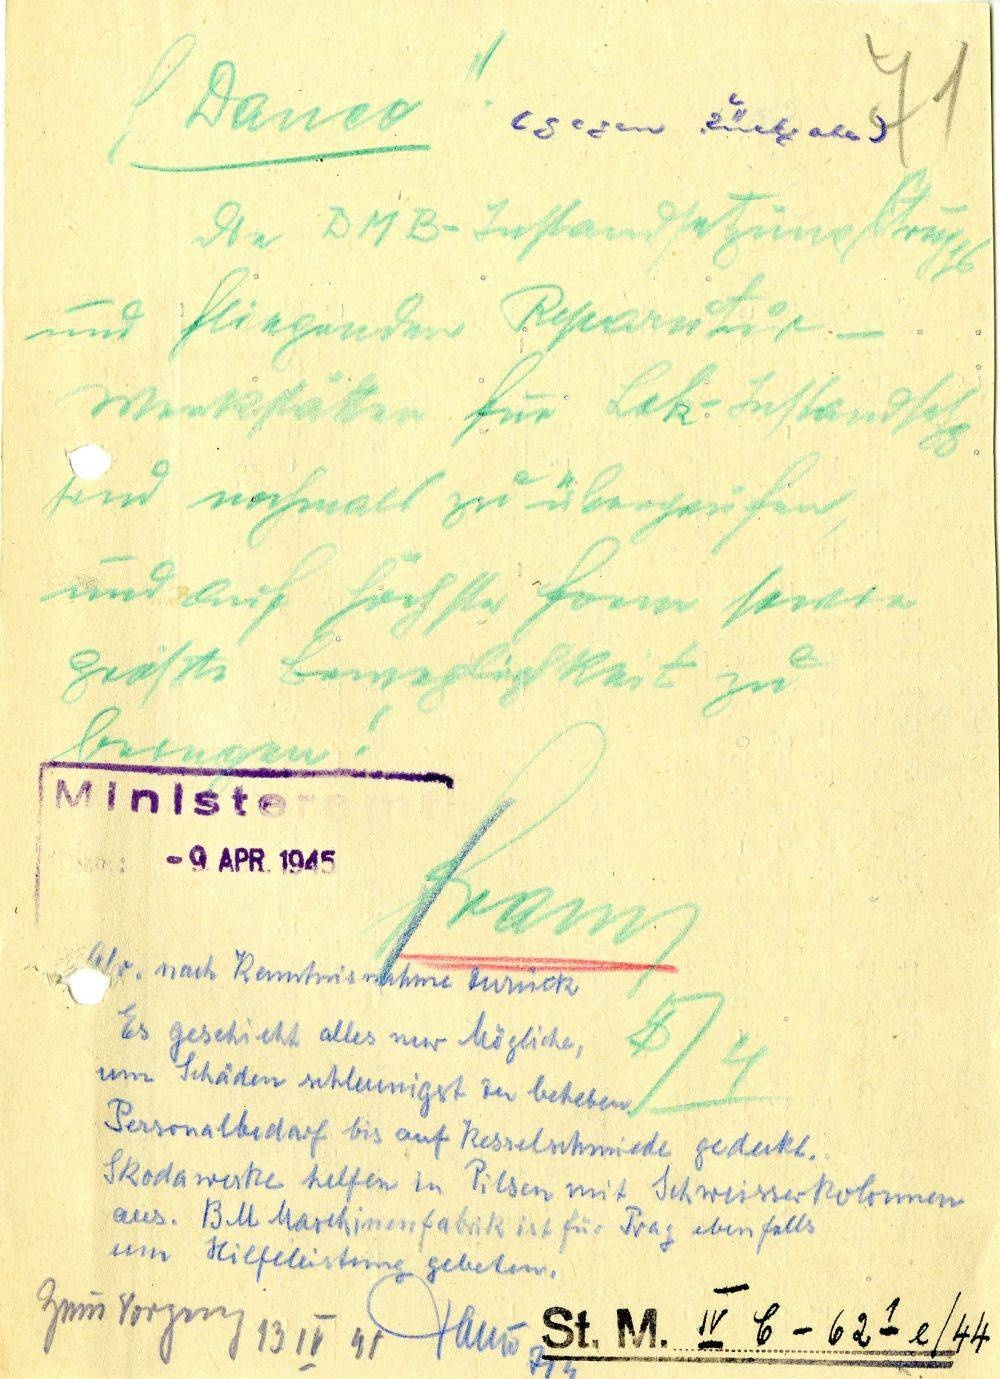 71
Danco!
(gegen Rückgabe)
Die BMB-Instandsetzungstrupps
und fliegenden Reparatur-
Werkstätten für Lok-Instandsetzg
sind nochmals zu überprüfen,
und auf höchste Form sowie
größte Beweglichkeit zu
bringen!
Ministeramt
- 9. APR. 1945
Frank
8/4
nach Kenntnisnahme zurück
Es geschieht alles nur Mögliche,
um Schäden schleunigst zu beheben
Personalbedarf bis auf Kesselschmiede gedeckt.
Skodawerke helfen in Pilsen mit Schweisserkolonnen
aus. BM Maschinenfabrik ist für Prag ebenfalls
um Hilfeleistung gebeten.
Zum Vorgang 13 IV 45
Danco 9/4
St. M. IV C - 62 1 - e/44